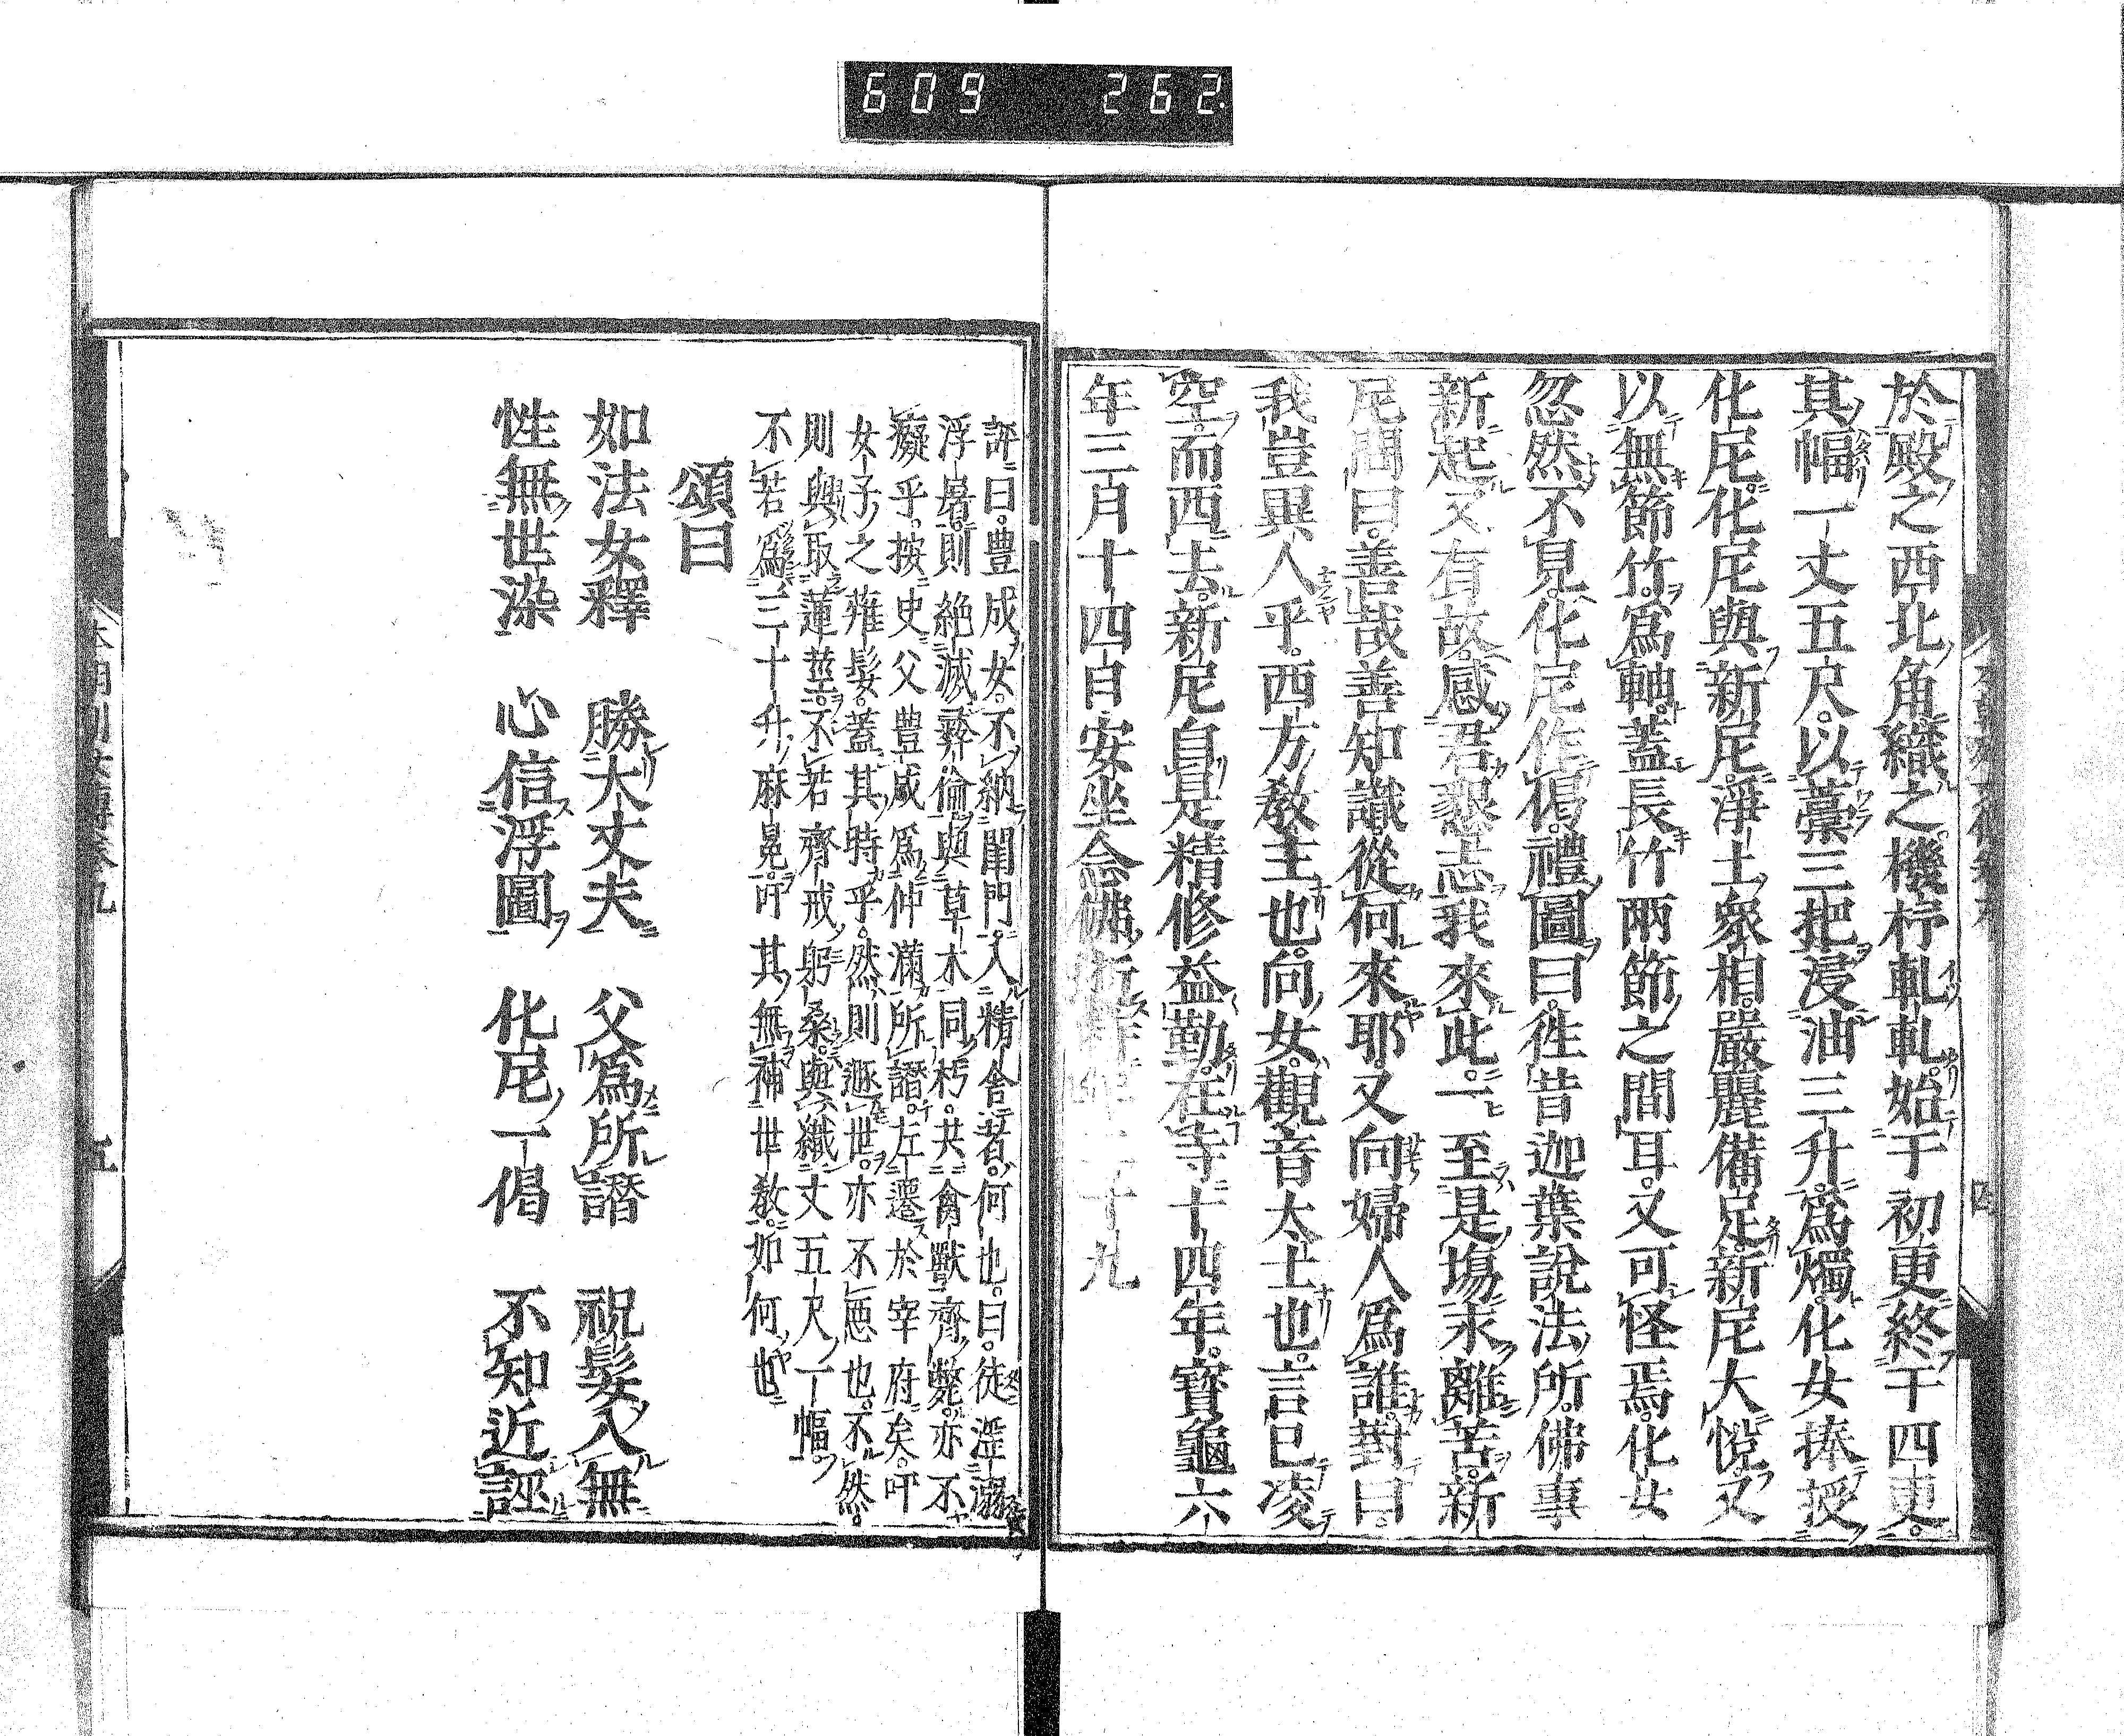 609 262
於殿之西北角織之機杼軋軋始于初更終于四更。
其幅一丈五尺。以藁三把浸油三升。爲燭。化女捧授
化尼。化尼與新尼。淨土衆相。嚴麗備足。新尼大悅。又
以無節竹。爲軸。蓋長竹兩節之間耳。又可怪焉。化女
忽然不見。化尼作偈。禮圖曰。徃昔迦葉說法所。佛事
新起又有故。感君懇志我來此。一至是塲永離苦。新
尼問曰。善哉善知識。從何來耶。又向婦人爲誰。對曰
我豈異人乎。西方敎主也。向女。觀音太士也。言已凌
空。而西去。新尼自是精修益勤。在寺十四年。寶龜六
年三月十四日安坐念佛
評曰。豊成女。不納閨門。入精舍者。何也。曰。徒淫溺
浮暑。則絕滅彜倫與草木同朽。共禽獸齊斃。亦不
癡乎。按史父豊成爲仲滿所譖。左遷於宰府矣。吁
女子之薙髮。蓋其時乎。然則遯世。亦不惡也。不然。
則與取蓮莖。不若齊戒躬桑。與織丈五尺一幅。
不若爲三十升麻冕。吁其無補世敎。如何也
頌曰
如法女釋 勝大丈夫 父爲所譖 祝髮入無
性無世染 心信浮圖 化尼一偈 不知近誣